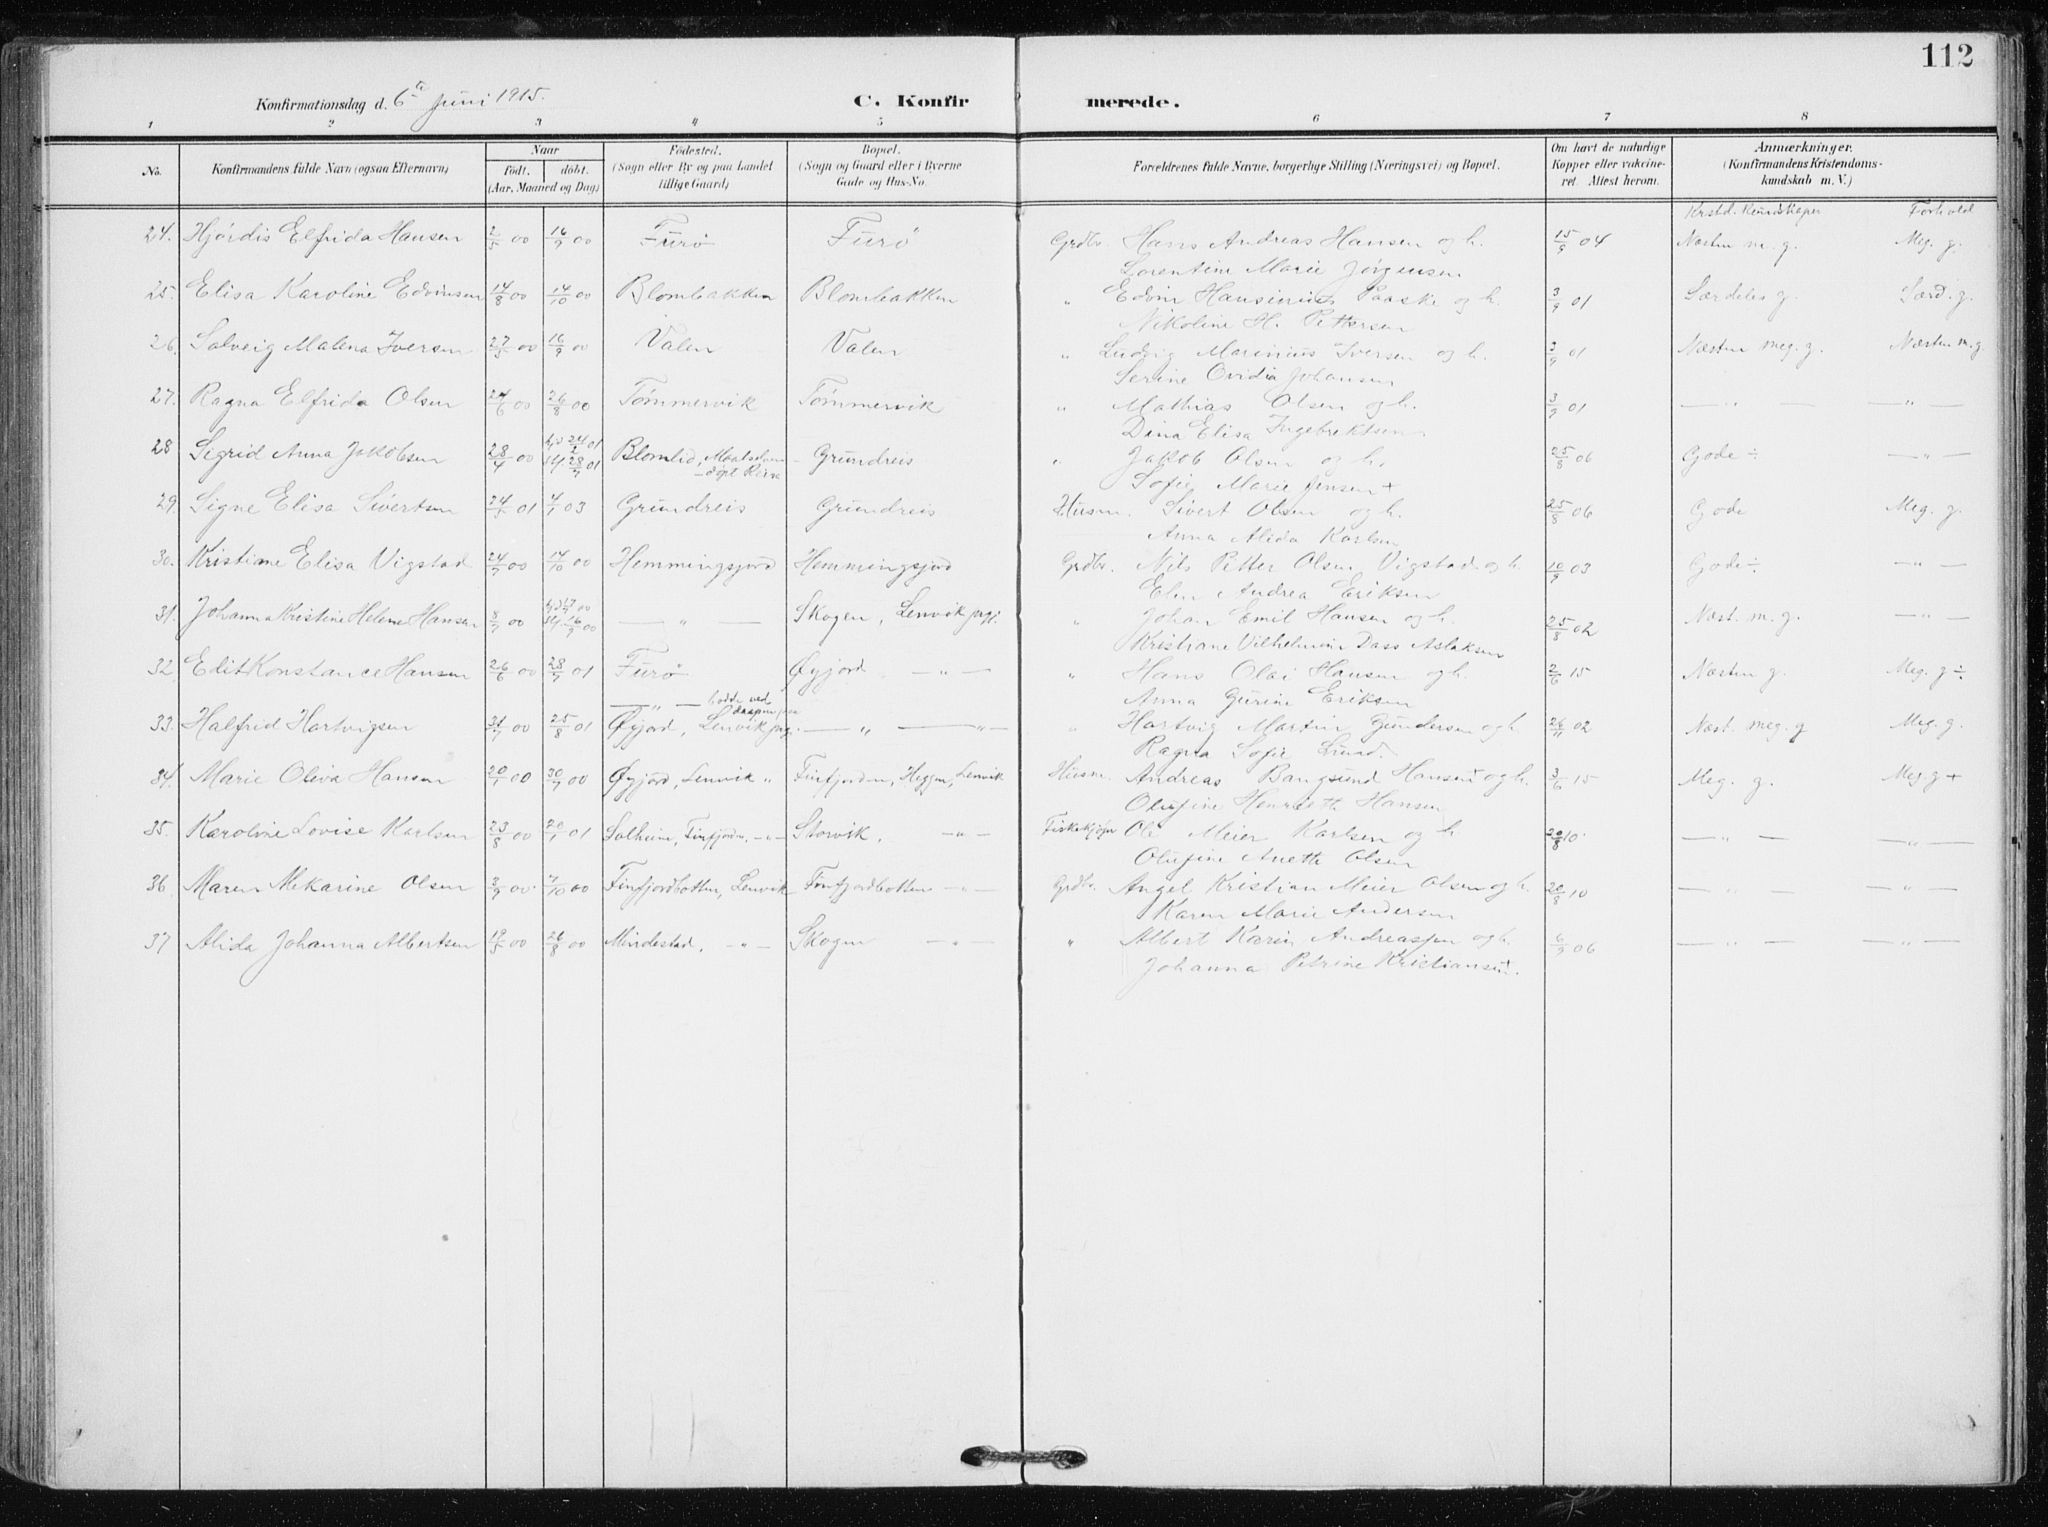 112
Konfirmationsdag d. 6te Juni 1915.
C. Konfirmerede.
1 2 3 4 5 6 7 8
No. Konfirmandens fulde Navn (ogsaa Efternavn) Naar født. døbt. (Aar, Maaned og Dag) Fødested. (Sogn eller By og paa Landet tillige Gaard) Bopæl. (Sogn og Gaard eller i Byerne Gade og Hus-No. Forældrenes fulde Navne, borgerlige Stilling (Næringsvei) og Bopæl. Om havt de naturlige Kopper eller vakcineret. Attest herom. Anmærkninger. (Konfirmandens Kristendomskundskab m. V.)
Krstd. Kundskaper Forhold
24. Hjørdis Elfrida Hansen 2/5 00 16/9 00 Furø Furø Grdbr. Hans Andreas Hansen og h. 15/9 04 Næsten m. g. Meg. g.
Lorentine Marie Jørgensen
25. Elisa Karoline Edvinsen 14/8 00 14/10 00 Blombakken Blombakken " Edvin Hansinius Paaske og h. 3/9 01 Særdeles g. Særd. g.
Nikoline H. Pettersen
26. Solveig Malena Iversen 27/5 00 16/9 00 Valen Valen " Ludvig Marinius Iversen og h. 3/9 01 Næsten meg. g. Næsten m. g.
Serine Ovidia Johansen
27. Ragna Elfrida Olsen 24/6 00 26/8 00 Tømmervik Tømmervik " Mathias Olsen og h. 3/9 01 — " — — " —
Dina Elisa Ingebrektsen
28 Sigrid Anna Jakobsen 28/4 00 24/2 01 28/7 01 Blomlid, Maalselven Grundreis " Jakob Olsen og h. 25/8 06 Gode ÷ — " —
Sofie Marie Jensen +
29. Signe Elisa Sivertsen 24/5 01 4/1 03 Grundreis Grundreis Husm. Sivert Olsen og h. 25/8 06 Gode Meg. g.
Anna Alida Karlsen
30. Kristiane Elisa Vigstad 24/7 00 14/10 00 Hemmingsjord Hemmingsjord Grdbr. Nils Petter Olsen Vigstad og h. 10/9 03 Gode ÷ — " —
Elen Andrea Eriksen
31. Johanna Kristine Helene Hansen 8/7 00 16/9 00 — " — Skogen, Lenvik prgj. " Johan Emil Hansen og h. 25/8 02 Næst. m. g. — " —
Kristiane Vilhelmine Dass Aslaksen
32 Edit Konstance Hansen 26/6 00 28/7 01 Furø Øyjord — " — " Hans Olai Hansen og h. 2/6 15 Næsten g. Meg. g ÷
Anna Gurine Eriksen
— " — bodde ved daapen paa
33. Halfrid Hartvigsen 31/7 00 25/8 01 Øyjord, Lenvik prgj. — " — — " — " Hartvig Martin Gundersen og h 26/11 02 Næst. meg. g Meg. g.
Ragna Sofie Lund.
34. Marie Oliva Hansen 20/1 00 30/7 00 Øyjord, Lenvik " Finfjorden, Heggen, Lenvik Husm. Andreas Bangsund Hansen + og h. 3/6 15 Meg. g. Meg. g +
Olufine Henriette Hansen
35. Karoline Lovise Karlsen 23/8 00 20/1 01 Solheim, Finfjorden, — " — Storvik, — " — Fiskekjøper Ole Meier Karlsen og h. 20/8 10 — " — — " —
Olufine Anette Olsen
36. Maren Mekarine Olsen 3/9 00 7/10 00 Finfjordbotten, Lenvik Finfjordbotten — " — Grdbr. Angel Kristian Meier Olsen og h. 20/8 10 — " — — " —
Karen Marie Andersen
37 Alida Johanna Albertsen 19/5 00 26/8 00 Mindestad, — " — Skogen — " — " Albert Andreassen og h. 6/9 06 — " — — " —
Johanna Petrine Kristiansen +.